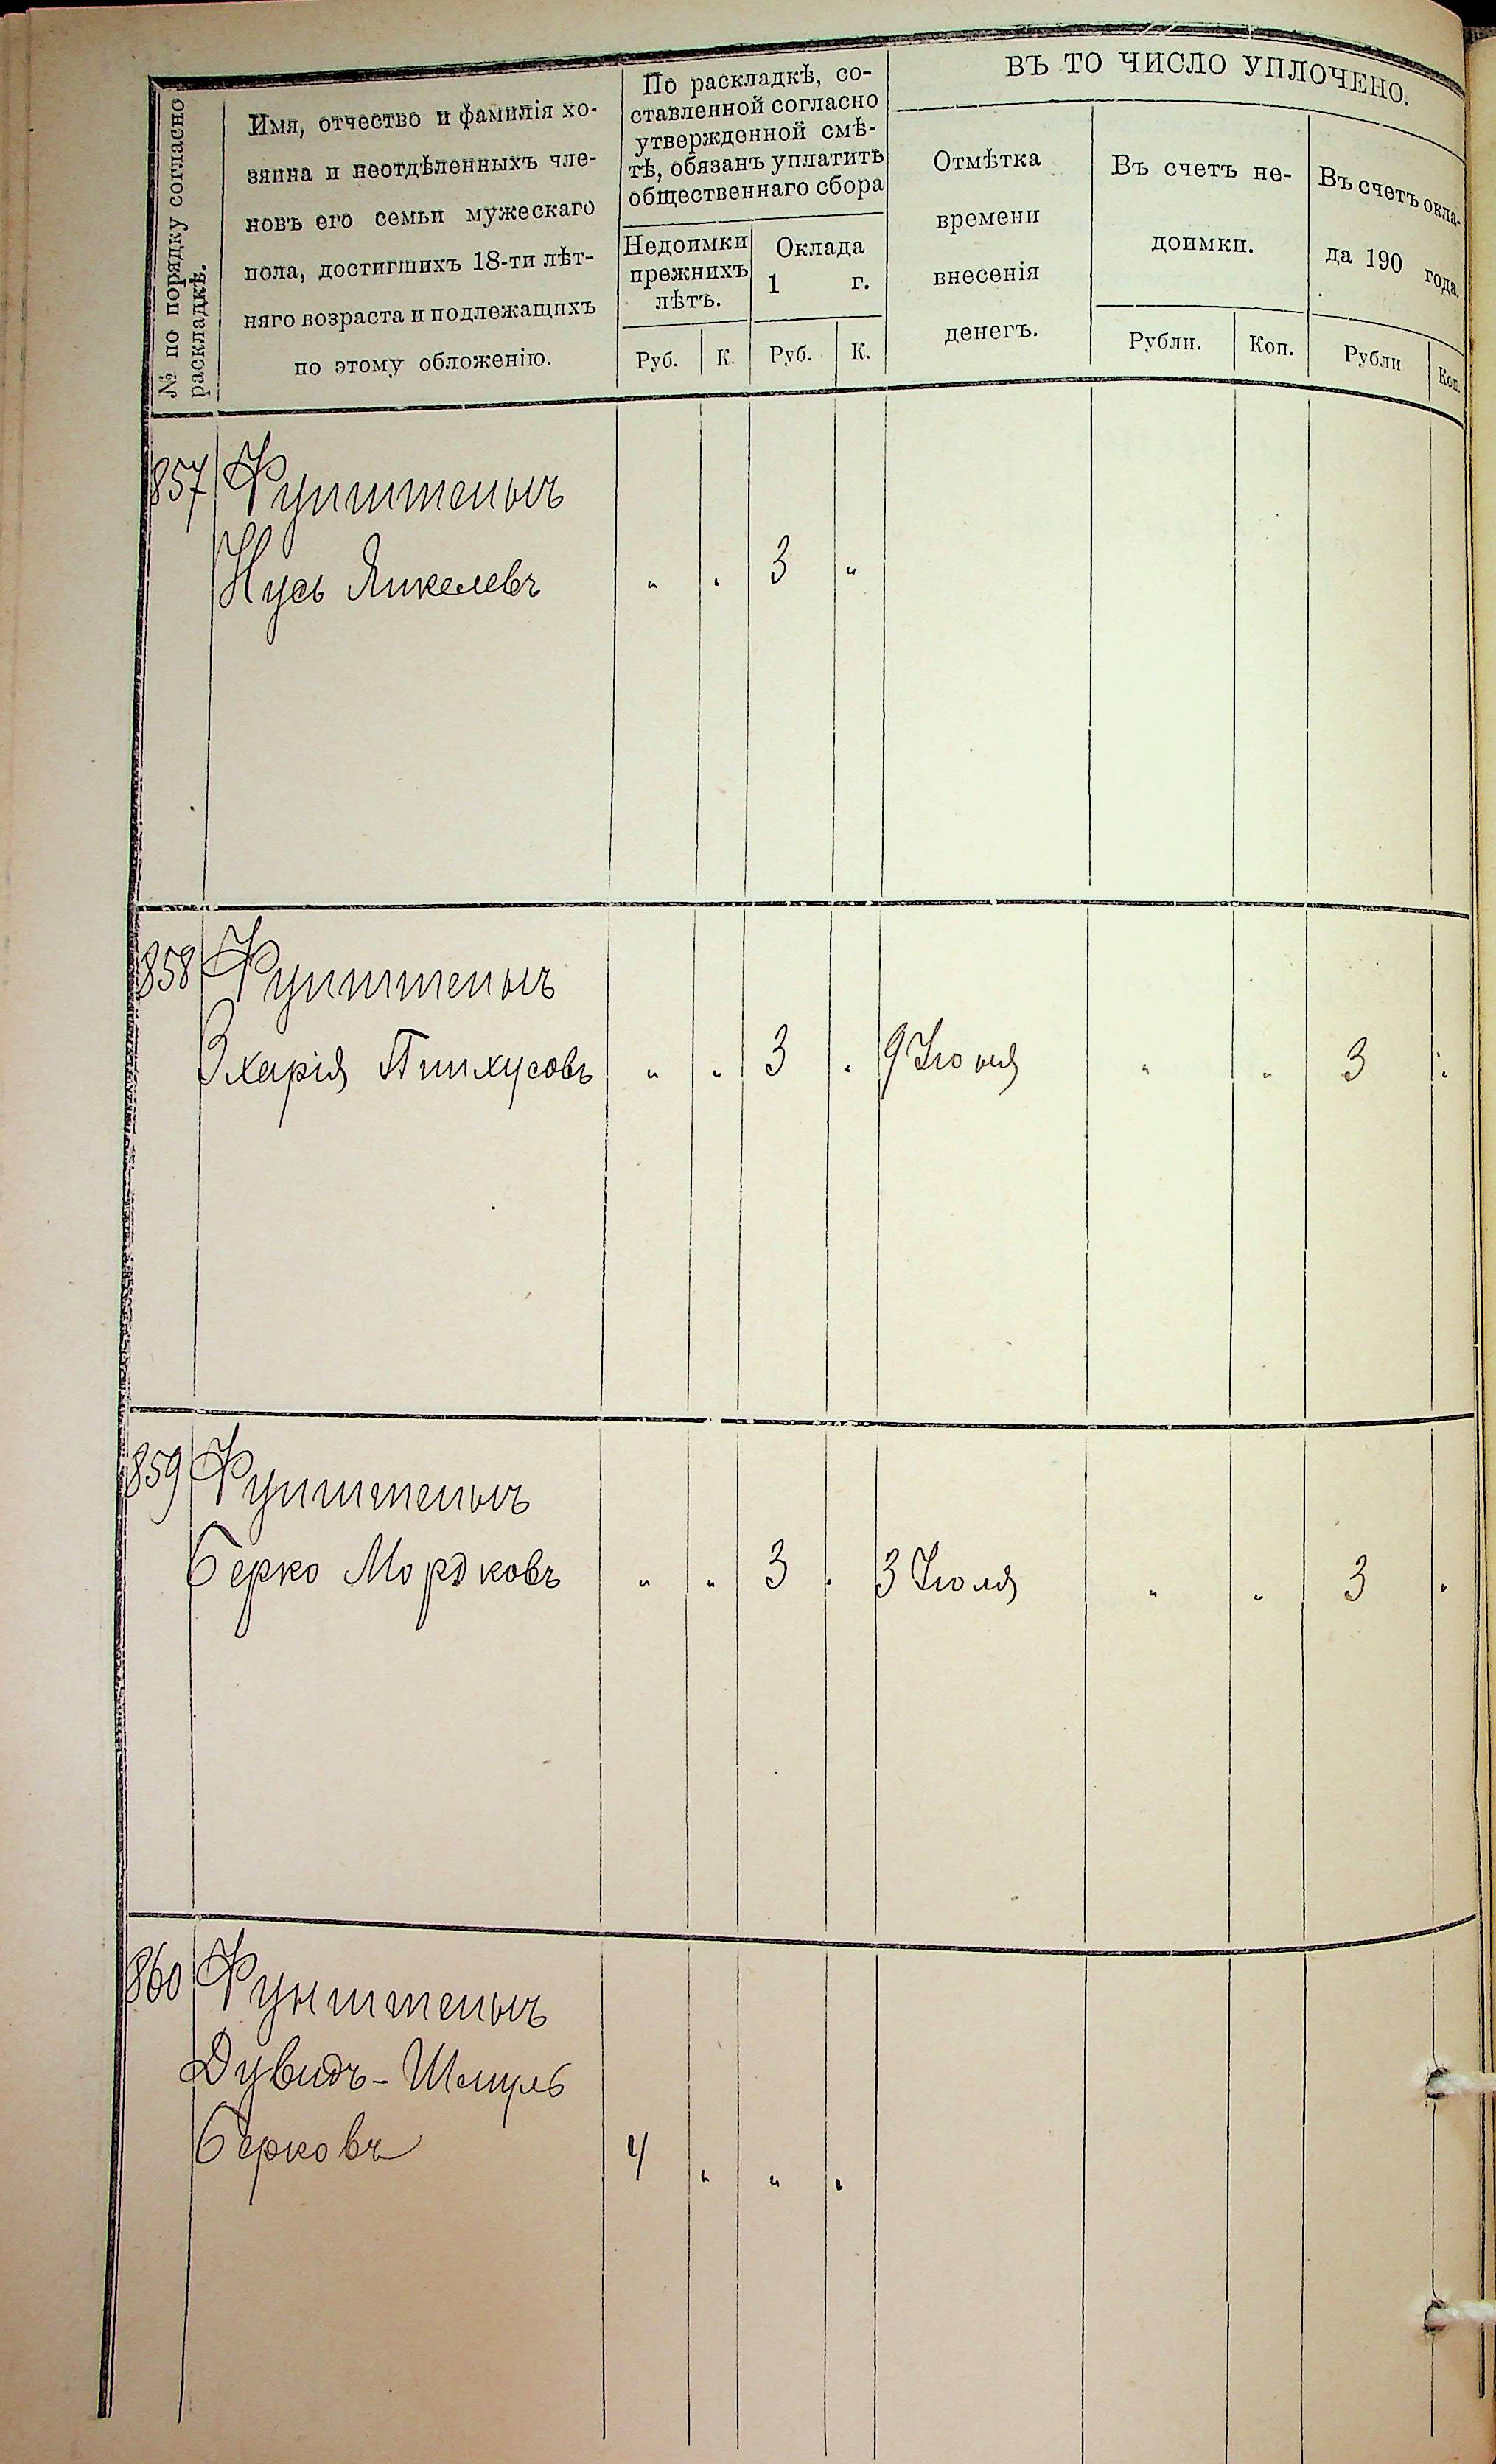 № по порядку согласно раскладкѣ.
Имя, отчество и фамилія хо-
зяина и неотдѣленныхъ чле-
новъ его семьи мужескаго
пола, достигшихъ 18-ти лѣт-
няго возраста и подлежащихъ
по этому обложенію.
По раскладкѣ, со-
ставленной согласно
утвержденной смѣ-
тѣ, обязанъ уплатить
общественнаго сбора
Недоимки
прежнихъ
лѣтъ.
Руб. К.
Оклада
1 г.
Руб. К.
ВЪ ТО ЧИСЛО УПЛОЧЕНО.
Отмѣтка
времени
внесенія
денегъ.
Въ счетъ не-
доимки.
Рубли. Коп.
Въ счетъ окла-
да 190 года.
Рубли Коп.
857 Фунштейнъ
Нусь Янкелевъ " " 3 "
858 Фунштейнъ
Зхарія Пинхусовъ " " 3 " 9 Іюня " " 3 "
859 Фунштейнъ
Берко Мордковъ " " 3 " 3 Іюля " " 3 "
860 Фунштейнъ
Дувидъ-Шмуль
Берковъ 4 " " "